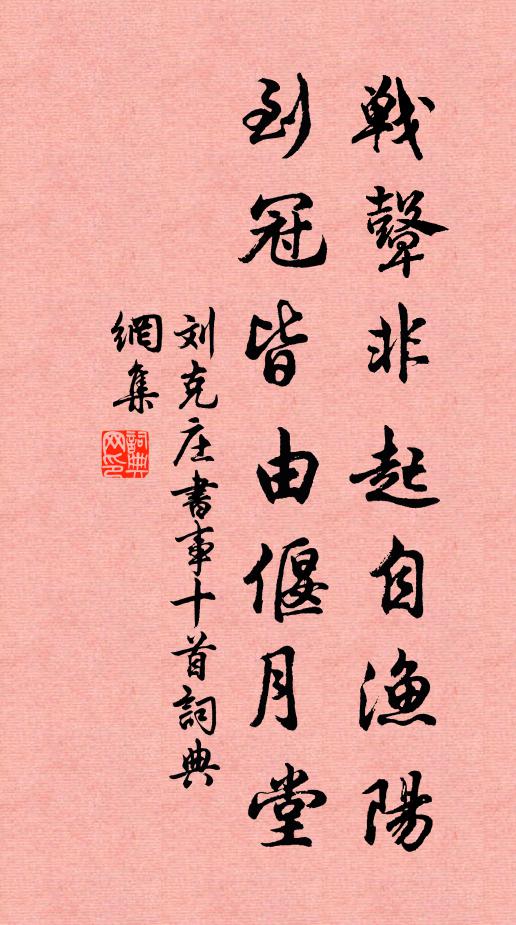 戦鼙非起自漁陽
到冠皆由偃月堂
刘克庄書事十首詞典
網集
詞典网印